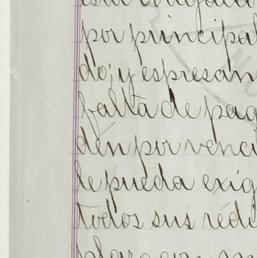 por principal
do; y espresan
falta de pag
den por venci
le pueda exig
todos sus rédi